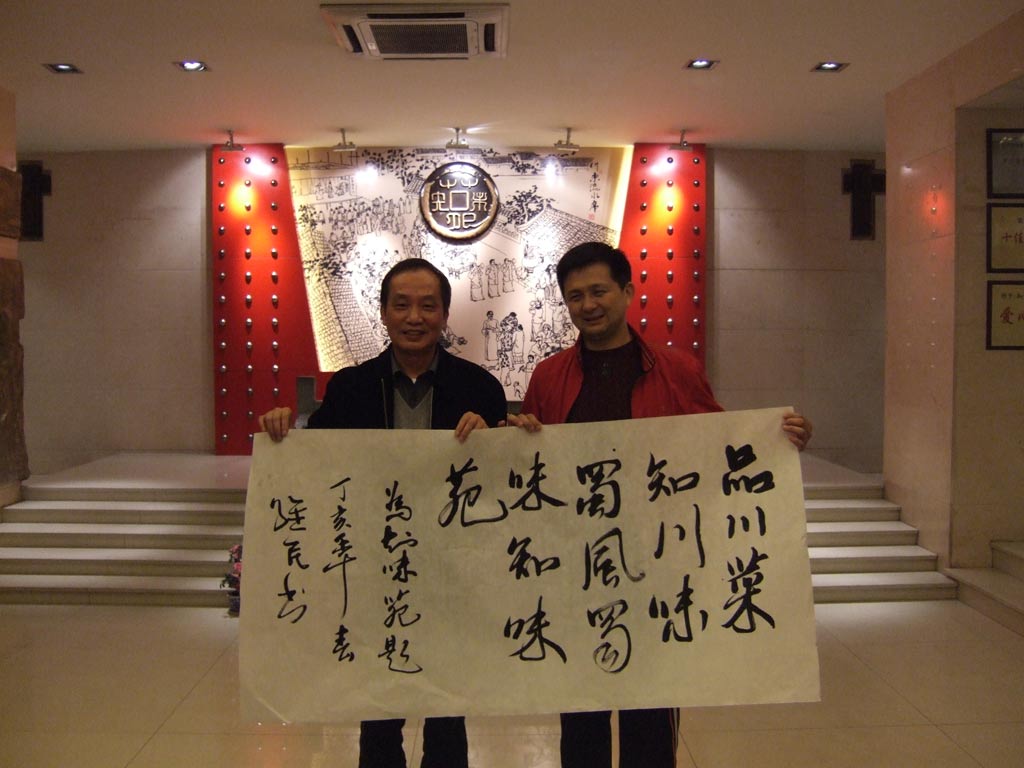 品川菜
知川味
蜀風蜀
味知味
苑
為知味苑題
丁亥年春
民书
十佳